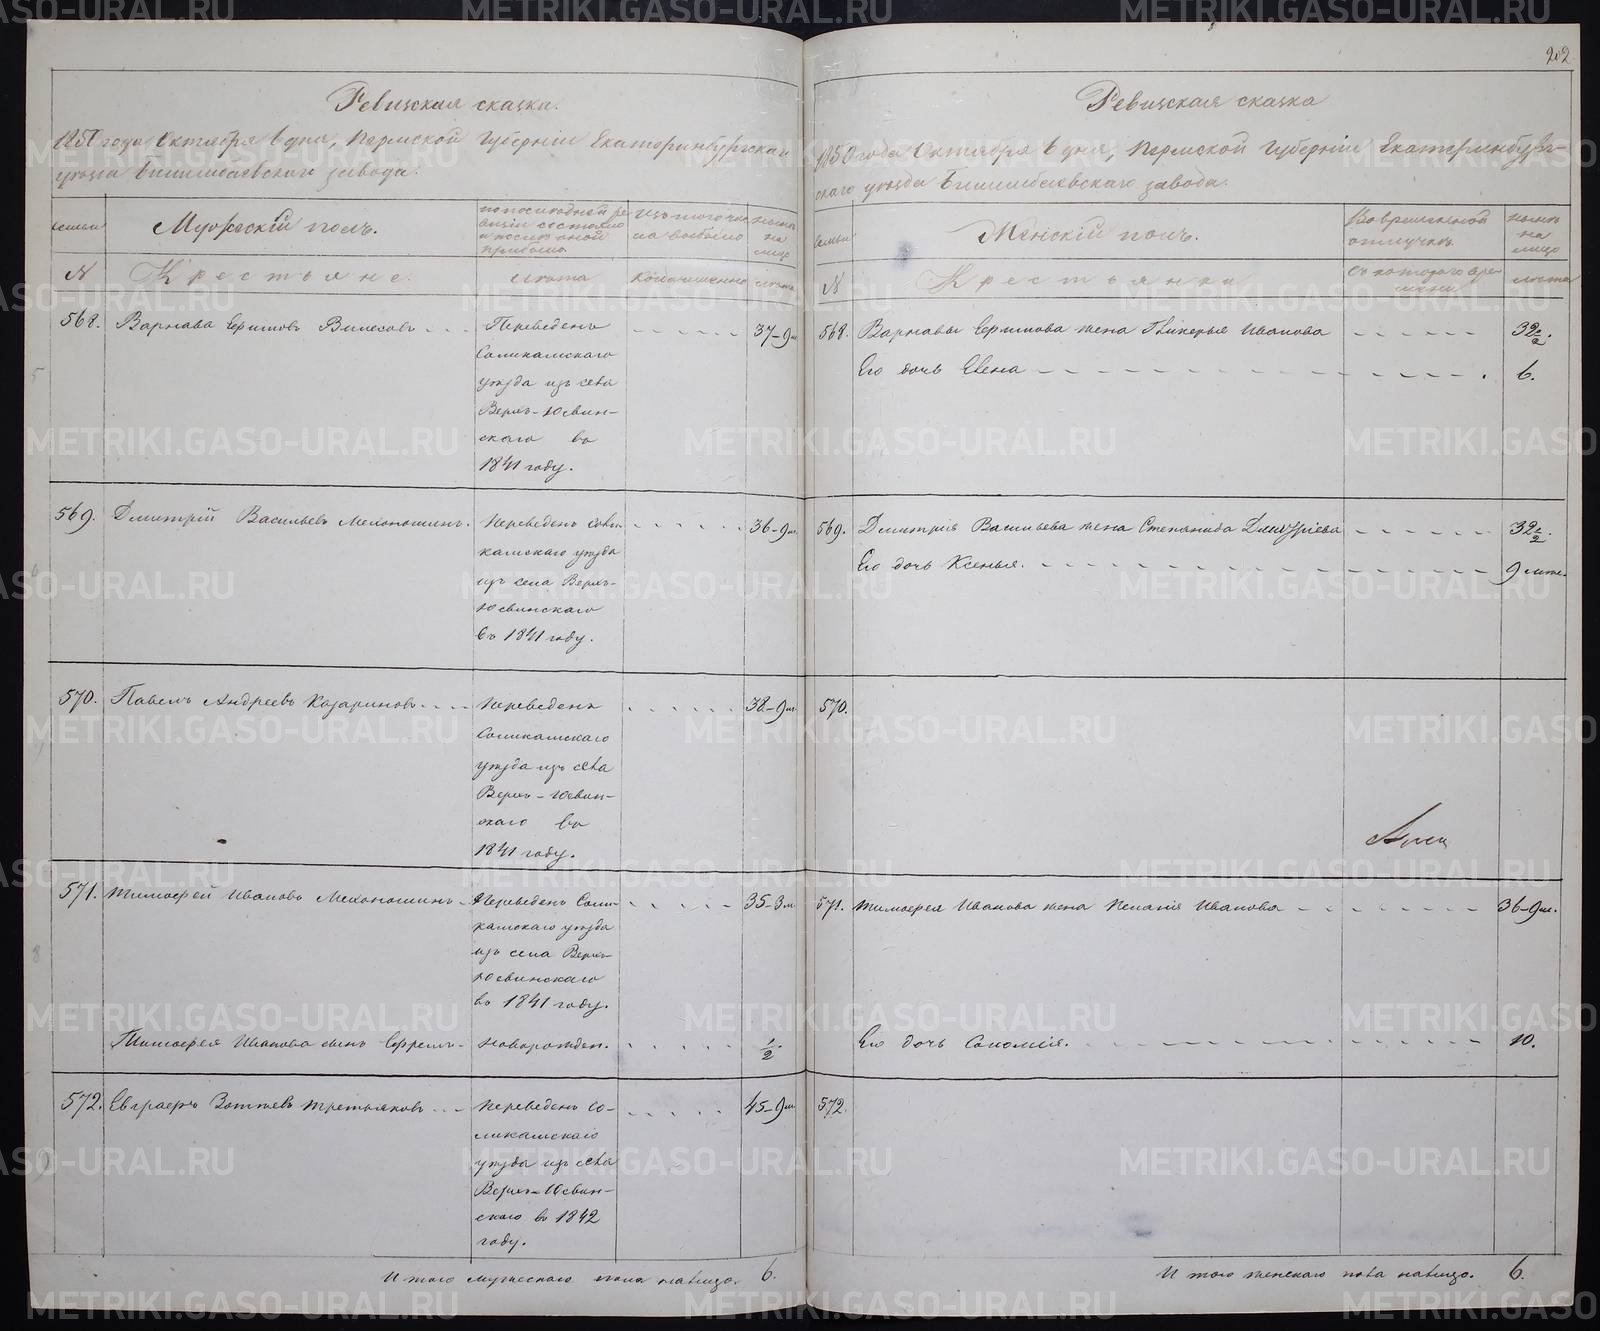 202
Ревизская сказка.
1850 года Октября 6 дня, Пермской Губернiи Екатеринбургскаго
уѣзда Билимбаевскаго завода.
семьи
Мужескiй полъ.
по последней ре-
визiи состояло
и после оной
прибыло
изъ того числа выбыло
ныне
на
лицо
N
Крестьяне.
лѣта
когда именно
лѣта
568. Варнава Ефимовъ Вилесовъ Переведенъ 37-9м
Соликамскаго
уѣзда изъ села
Верхъ-Юсвин-
скаго въ
1841 году.
569. Дмитрiй Васильевъ Мехоношинъ. Переведенъ Соли- 36-9м.
камскаго уѣзда
изъ села Верхъ-
Юсвинскаго
въ 1841 году.
570. Павелъ Андреевъ Казариновъ Переведенъ 38-9м.
Соликамскаго
уѣзда изъ села
Верхъ-Юсвин-
скаго въ
1841 году.
571. Тимофей Ивановъ Мехоношинъ Переведенъ Соли- 35-3м.
камскаго уѣзда
изъ села Верхъ-
Юсвинскаго
въ 1841 году.
Тимофея Иванова сынъ Ефремъ новорожден. ½.
572. Евграфъ Зотѣевъ Третьяковъ Переведенъ Со- 45-9м
ликамскаго
уѣзда изъ села
Верхъ-Юсвин-
скаго въ 1842
году.
Итого мужескаго пола налицо. 6.
Ревизская сказка
1850 года Октября 6 дня, Пермской Губернiи Екатеринбург-
скаго уѣзда Билимбаевскаго завода.
семьи
Женскiй полъ.
Во временной
отлучкѣ.
ныне
на
лицо
N
Крестьянки
съ котораго вре-
мени
лѣта
568. Варнавы Ефимова жена Гликерья Иванова 32½.
Его дочь Елена 6.
569. Дмитрiя Васильева жена Степанида Дмитрiева 32½.
Его дочь Ксенья. 9 мѣс.
570.
571. Тимофея Иванова жена Пелагiя Иванова 36-9м.
Его дочь Соломiя. 10.
572.
Итого женскаго пола налицо. 6.
METRIKI.GASO-URAL.RU